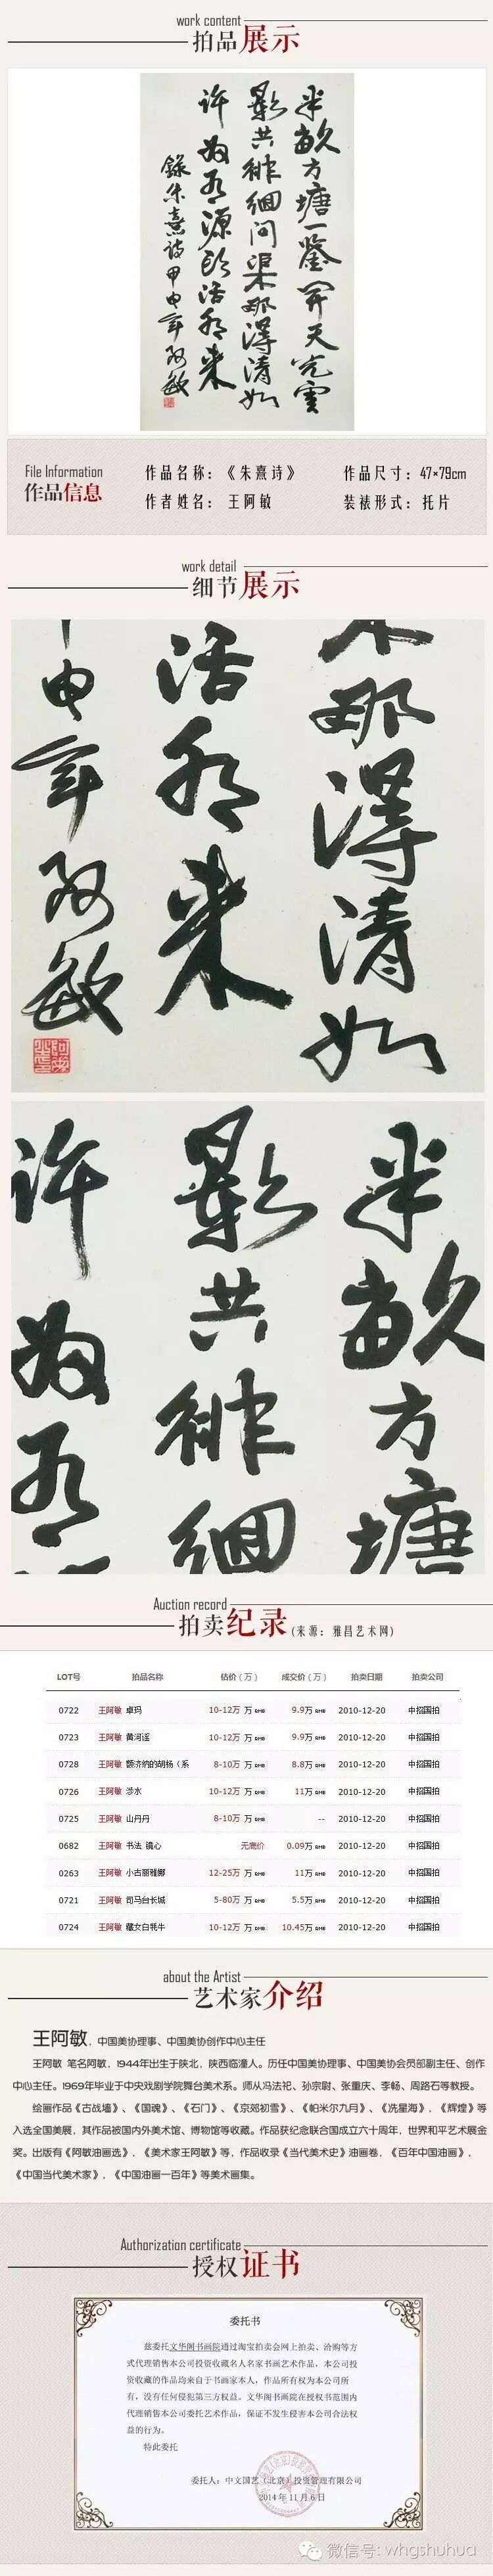 work content
拍品展示
半畝方塘一鉴开天光雲
影共徘徊问渠那得清如
许为有源头活水来
錄朱熹诗甲申年阿敏
File Information
作品信息
作品名称：《朱熹诗》
作品尺寸：47×79cm
作者姓名：王阿敏
装裱形式：托片
work detail
细节展示
那得清如
活水来
申年阿敏
半畝方塘
影共徘徊
许为有
Auction record
拍卖纪录(来源：雅昌艺术网)
LOT号 拍品名称 估价（万） 成交价（万） 拍卖日期 拍卖公司
0722 王阿敏 卓玛 10-12万 万 RMB 9.9万 RMB 2010-12-20 中招国拍
0723 王阿敏 黄河谣 10-12万 万 RMB 9.9万 RMB 2010-12-20 中招国拍
0728 王阿敏 额济纳的胡杨（系 8-10万 万 RMB 8.8万 RMB 2010-12-20 中招国拍
0726 王阿敏 涉水 10-12万 万 RMB 11万 RMB 2010-12-20 中招国拍
0725 王阿敏 山丹丹 8-10万 万 RMB -- 2010-12-20 中招国拍
0682 王阿敏 书法 镜心 无底价 0.09万 RMB 2010-12-20 中招国拍
0263 王阿敏 小古丽雅娜 12-25万 万 RMB 11万 RMB 2010-12-20 中招国拍
0721 王阿敏 司马台长城 5-80万 万 RMB 5.5万 RMB 2010-12-20 中招国拍
0724 王阿敏 藏女白牦牛 10-12万 万 RMB 10.45万 RMB 2010-12-20 中招国拍
about the Artist
艺术家介绍
王阿敏，中国美协理事、中国美协创作中心主任
王阿敏 笔名阿敏，1944年出生于陕北，陕西临潼人。历任中国美协理事、中国美协会员部副主任、创作
中心主任。1969年毕业于中央戏剧学院舞台美术系。师从冯法祀、孙宗慰、张重庆、李畅、周路石等教授。
绘画作品《古战墙》、《国魂》、《石门》、《京郊初雪》、《帕米尔九月》、《冼星海》，《辉煌》等
入选全国美展，其作品被国内外美术馆、博物馆等收藏。作品获纪念联合国成立六十周年，世界和平艺术展金
奖。出版有《阿敏油画选》，《美术家王阿敏》等，作品收录《当代美术史》油画卷，《百年中国油画》，
《中国当代美术家》，《中国油画一百年》等美术画集。
Authorization certificate
授权证书
委托书
兹委托文华阁书画院通过淘宝拍卖会网上拍卖、洽购等方
式代理销售本公司投资收藏名人名家书画艺术作品，本公司投
资收藏的作品均来自于书画家本人，作品所有权为本公司所
有，没有任何侵犯第三方权益。文华阁书画院在授权书范围内
代理销售本公司委托艺术作品，保证不发生侵害本公司合法权
益的行为。
特此委托
委托人：中文国艺（北京）投资管理有限公司
2014年11月6日
微信号: whgshuhua